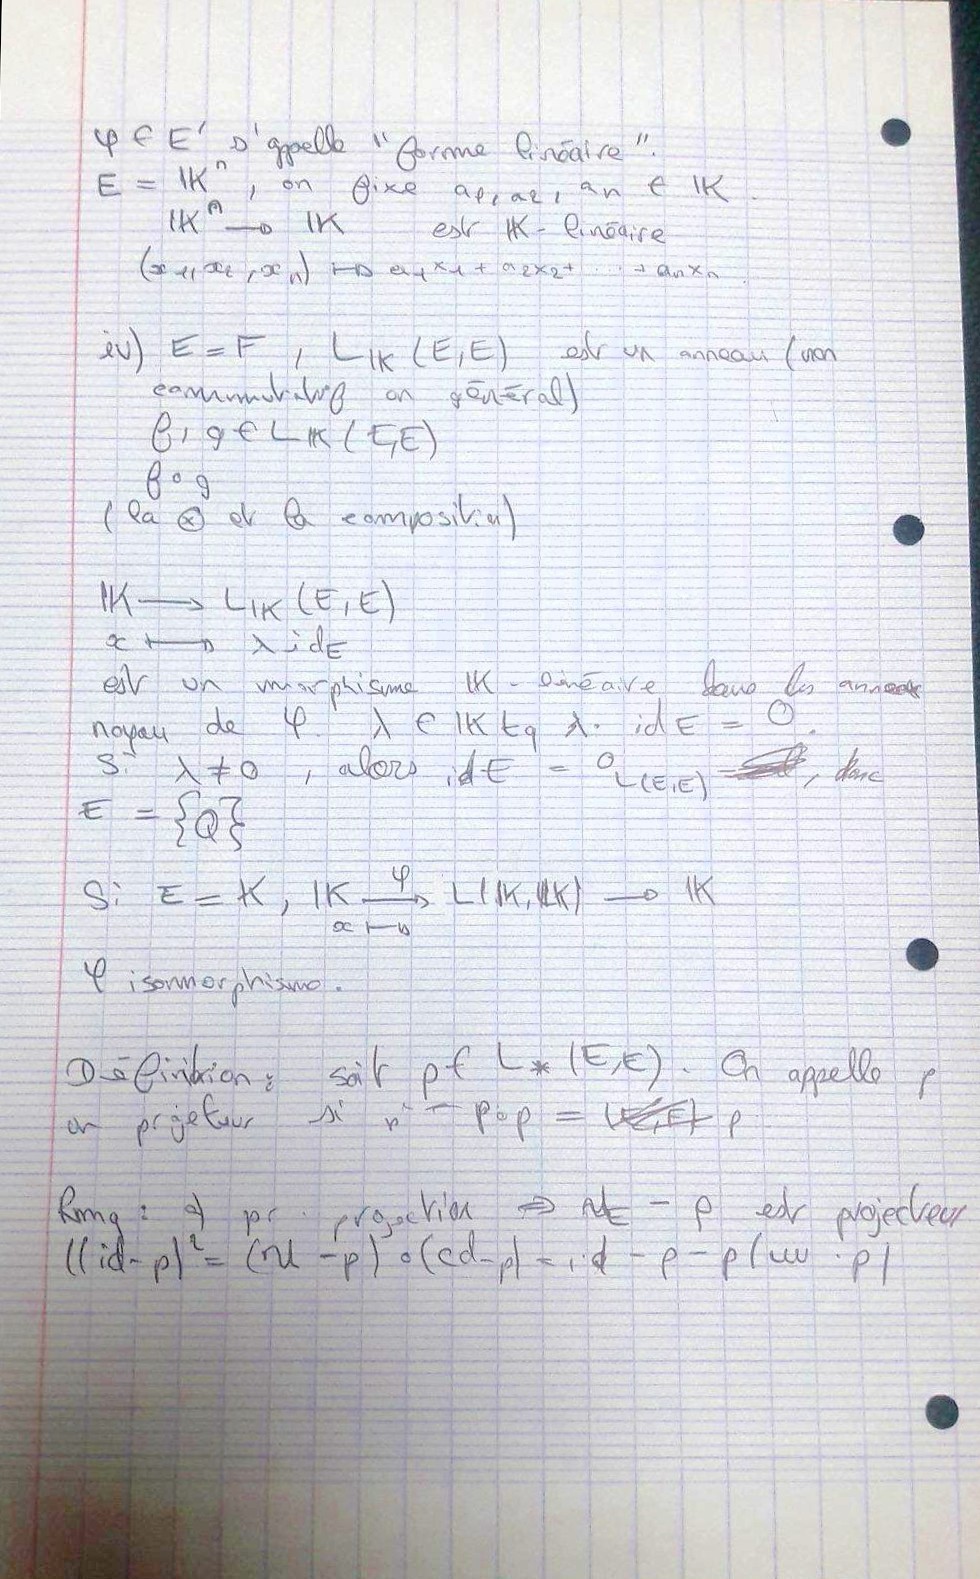 φ ∈ E' s'appelle "forme linéaire".
E = 𝕂ⁿ, on fixe a₁, a₂, aₙ ∈ 𝕂.
𝕂ⁿ → 𝕂 est 𝕂-linéaire
(x₁, x₂, xₙ) ↦ a₁x₁ + a₂x₂ + ... + aₙxₙ.
iv) E = F, L𝕂(E,E) est un anneau (non
commutatif en général)
f, g ∈ L𝕂(E,E)
f∘g
(la ⊗ et la composition)
𝕂 → L𝕂(E,E)
x ↦ λ idE
est un morphisme 𝕂-linéaire, dans les anneaux
noyau de φ λ ∈ 𝕂 tq λ. idE = 0.
Si λ ≠ 0, alors idE = 0L(E,E), donc
E = {0}
Si E = K, 𝕂 →φ L(𝕂,𝕂) → 𝕂
x ↦
φ isonmorphisme.
Définition: soit p ∈ L*(E,E). On appelle p
un projeteur si p² = p∘p = p
Rmq: pr. projection ⇒ idE - p est projecteur
((id-p)² = (id - p)∘(id-p) = id - p - p